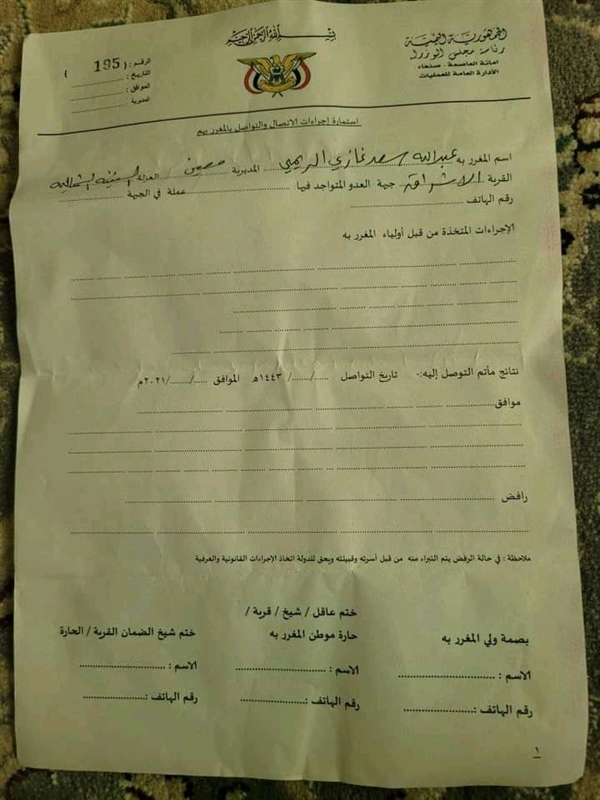 بسم الله الرحمن الرحيم
الجمهورية اليمنية
رئاسة مجلس الوزراء
امانة العاصمة - صنعاء
الأدارة العامة للعمليات
الرقم : ( 195 )
التاريخ :
الموافق :
المديرية :
استمارة إجراءات الاتصال والتواصل بالمغرر بهم
اسم المغرر به عبدالله سعد غازي الريمي المديرية معين العزلة السنينه الشمالية
القرية الاشراق جهة العدو المتواجد فيها عملة في الجهة
رقم الهاتف
الإجراءات المتخذة من قبل أولياء المغرر به
نتائج ماتم التوصل إليه:- تاريخ التواصل ..../..../١٤٤٣هـ الموافق ..../..../٢٠٢١م
موافق
رافض
ملاحظة : في حالة الرفض يتم التبراء منه من قبل أسرته وقبيلته ويحق للدولة اتخاذ الإجراءات القانونية والعرفية
بصمة ولي المغرر به
الاسم :
رقم الهاتف:
ختم عاقل / شيخ / قرية /
حارة موطن المغرر به
الاسم :
رقم الهاتف:
ختم شيخ الضمان القرية / الحارة
الاسم :
رقم الهاتف:
١